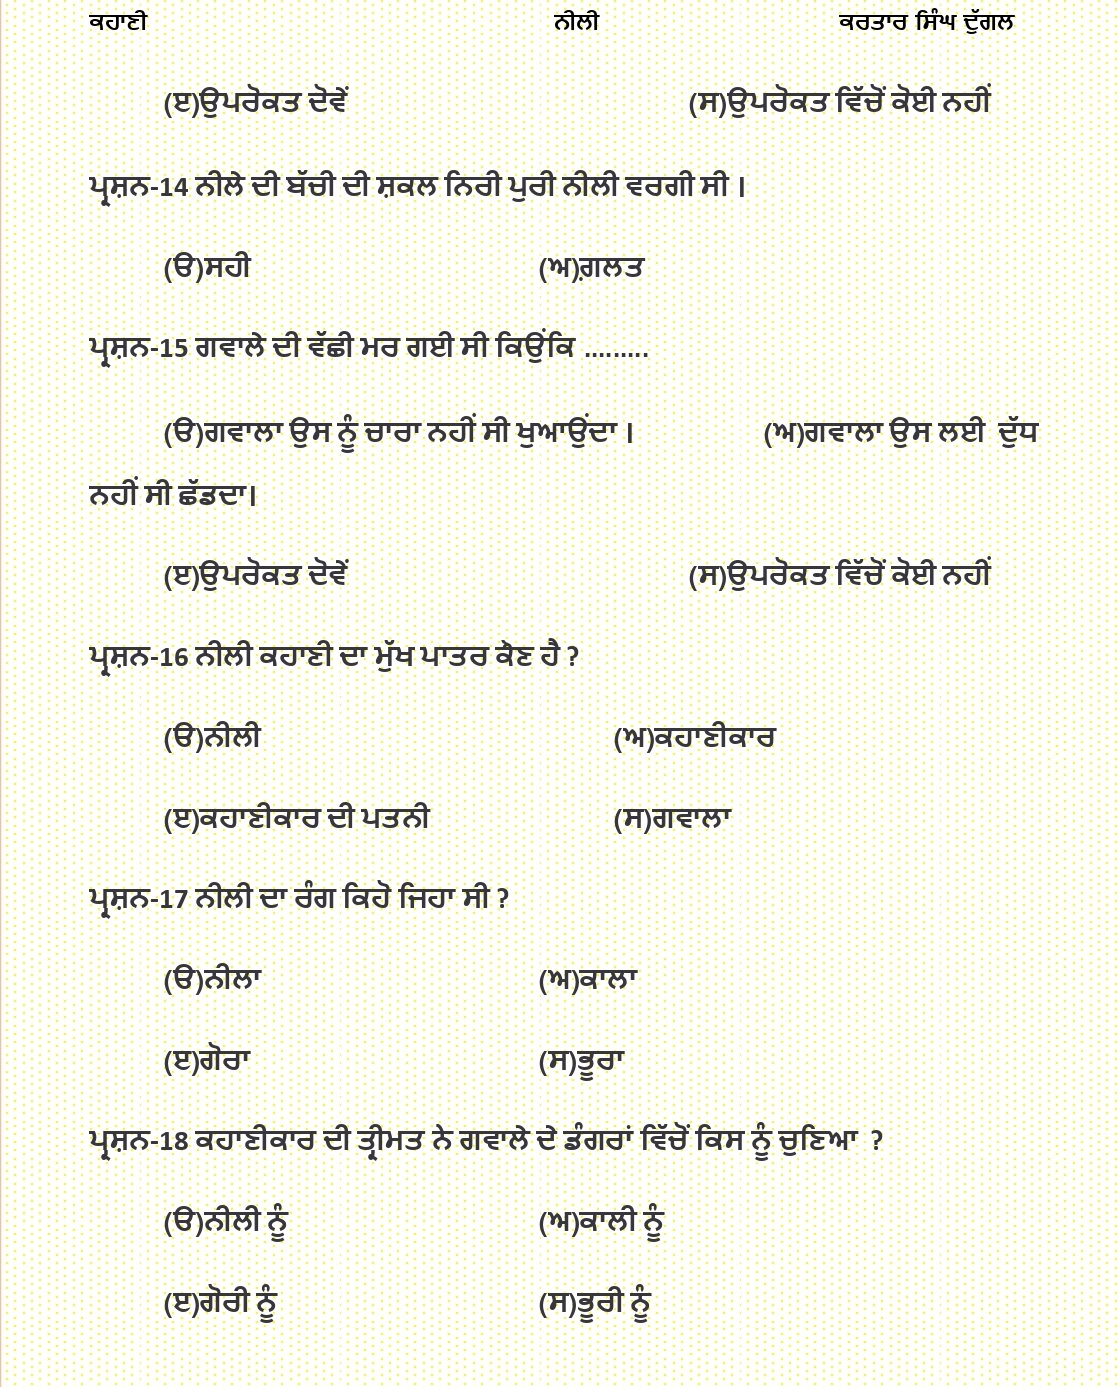 ਕਹਾਣੀ ਨੀਲੀ ਕਰਤਾਰ ਸਿੰਘ ਦੁੱਗਲ
(ੲ)ਉਪਰੋਕਤ ਦੋਵੇਂ (ਸ)ਉਪਰੋਕਤ ਵਿੱਚੋਂ ਕੋਈ ਨਹੀਂ
ਪ੍ਰਸ਼ਨ-14 ਨੀਲੇ ਦੀ ਬੱਚੀ ਦੀ ਸ਼ਕਲ ਨਿਰੀ ਪੁਰੀ ਨੀਲੀ ਵਰਗੀ ਸੀ ।
(ੳ)ਸਹੀ (ਅ)ਗ਼ਲਤ
ਪ੍ਰਸ਼ਨ-15 ਗਵਾਲੇ ਦੀ ਵੱਛੀ ਮਰ ਗਈ ਸੀ ਕਿਉਂਕਿ .........
(ੳ)ਗਵਾਲਾ ਉਸ ਨੂੰ ਚਾਰਾ ਨਹੀਂ ਸੀ ਖੁਆਉਂਦਾ । (ਅ)ਗਵਾਲਾ ਉਸ ਲਈ ਦੁੱਧ
ਨਹੀਂ ਸੀ ਛੱਡਦਾ।
(ੲ)ਉਪਰੋਕਤ ਦੋਵੇਂ (ਸ)ਉਪਰੋਕਤ ਵਿੱਚੋਂ ਕੋਈ ਨਹੀਂ
ਪ੍ਰਸ਼ਨ-16 ਨੀਲੀ ਕਹਾਣੀ ਦਾ ਮੁੱਖ ਪਾਤਰ ਕੌਣ ਹੈ ?
(ੳ)ਨੀਲੀ (ਅ)ਕਹਾਣੀਕਾਰ
(ੲ)ਕਹਾਣੀਕਾਰ ਦੀ ਪਤਨੀ (ਸ)ਗਵਾਲਾ
ਪ੍ਰਸ਼ਨ-17 ਨੀਲੀ ਦਾ ਰੰਗ ਕਿਹੋ ਜਿਹਾ ਸੀ ?
(ੳ)ਨੀਲਾ (ਅ)ਕਾਲਾ
(ੲ)ਗੋਰਾ (ਸ)ਭੂਰਾ
ਪ੍ਰਸ਼ਨ-18 ਕਹਾਣੀਕਾਰ ਦੀ ਤ੍ਰੀਮਤ ਨੇ ਗਵਾਲੇ ਦੇ ਡੰਗਰਾਂ ਵਿੱਚੋਂ ਕਿਸ ਨੂੰ ਚੁਣਿਆ ?
(ੳ)ਨੀਲੀ ਨੂੰ (ਅ)ਕਾਲੀ ਨੂੰ
(ੲ)ਗੋਰੀ ਨੂੰ (ਸ)ਭੂਰੀ ਨੂੰ